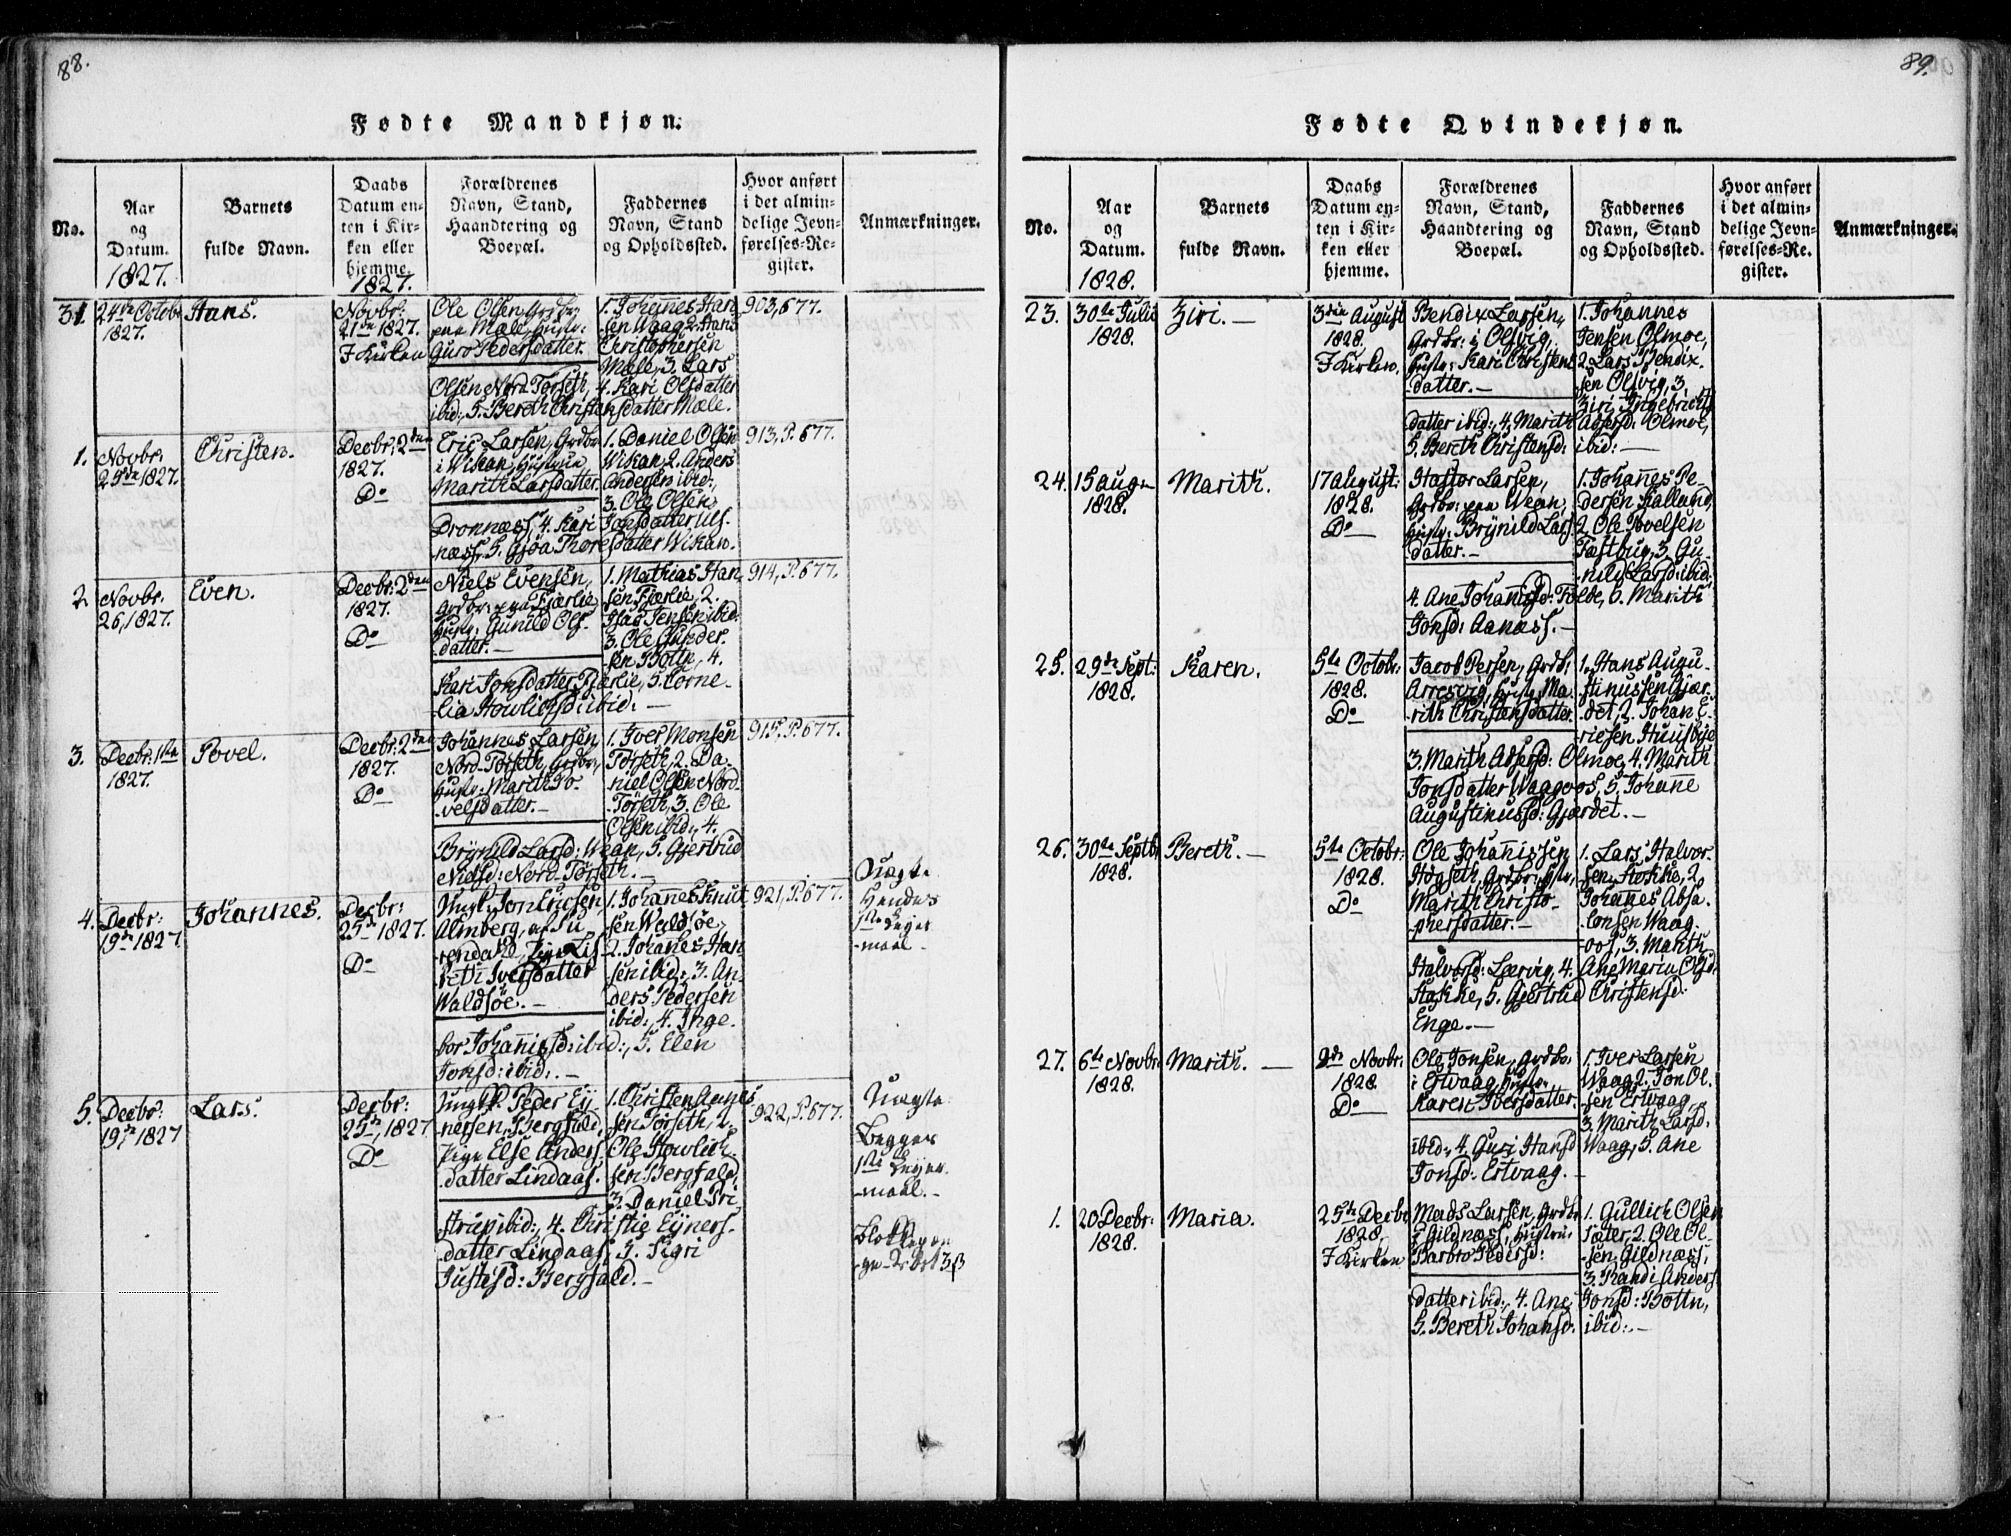 88.
Fødte Mandkjøn.
No.
Aar og Datum.
1827.
Barnets fulde Navn.
Daabs Datum enten i Kirken eller hjemme.
1827.
Forældrenes Navn, Stand, Haandtering og Boepæl.
Faddernes Navn, Stand og Opholdssted.
Hvor anført i det almindelige Jevnførelses-Register.
Anmærkninger.
31.
24de Octobr
1827.
Hans.
Novbr:
21de 1827.
I Kirken
Ole Olsen Grdbr:
paa Mæle, Hustr:
Guro Pedersdatter.
1. Johannes Han
sen Waag 2. Hans
Christophersen
Mæle, 3. Lars
Olsen Nord-Torseth, 4. Kari Olsdatter
ibid:, 5. Bereth Christensdatter Mæle.
903, 677.
1.
Novbr:
25de 1827.
Christen.
Decbr: 2den
1827.
Do
Eric Larsen, Grdbr
i Wikan, Hustrue
Marith Larsdatter.
1. Daniel Olsen
Wikan, 2. Anders
Andersen ibid:,
3. Ole Olsen
Dronnæss, 4. Kari Jonsdatter Uls-
næss, 5. Gjøa Thoresdatter Wikan.
913, P. 677.
2.
Novbr.
26, 1827.
Even.
Decbr: 2den
1827.
Do
Niels Evensen,
Grdbr: paa Fjærlie,
Hustr: Gunild Ols-
datter.—
1. Mathias Han
sen Fjærlie, 2.
Isac Jensen ibid:
3. Ole Gunder
sen Bottn, 4.
Kari Jonsdatter Fjærlie, 5. Corne-
lia Howlichsd: ibid:—
914, P. 677.
3.
Decbr: 1ste
1827.
Povel.
Decbr: 2den
1827.
Do
Johannes Larsen
Nord-Torseth, Grdbr,
Hustr: Marith Po-
velsdatter.—
1. Iver Monsen
Torseth, 2. Da-
niel Olsen Nord-
Torseth, 3. Ole
Olsen ibid:, 4.
Brynild Larsd: Wean, 5. Gjertrud
Nielsd: Nord-Torseth.—
915, P. 677.
4.
Decbr:
19de 1827.
Johannes.
Decbr:
25de 1827.
Do
Ungk: Jon Ericsen,
Almberg, af Su
rendahl, Pige Lis
beth Iversdatter
Waldsøe.—
1. Johannes Knut
sen Waldsøe,
2. Johanes Han
sen ibid:, 3. An
ders Pedersen
ibid:, 4. Inge-
bor Johannisd: ibid:, 5. Elen
Jonsd: ibid:.—
921, P. 677.
Uægte.
Hendes
1ste Leyer
maal.
5.
Decbr:
19de 1827
Lars.
Decbr:
25de 1827.
Do
Ungk: Peder Ey
nersen, Bergsald,
Pige Else Anders-
datter Lindaas.
1. Christen
sen Torseth, 2.
Ole Howlich-
sen Bergsald,
3. Daniel Pri
strup ibid:, 4. Christie Eyners-
datter Lindaas, 5. Sigri
Justisd: Bergsald.—
922, P. 677.
Uægte.
Begges
1ste Leyer-
maal.—
89.
Fødte Qvindekjøn.
No.
Aar og Datum.
1828.
Barnets fulde Navn.
Daabs Datum enten i Kirken eller hjemme.
Forældrenes Navn, Stand, Haandtering og Boepæl.
Faddernes Navn, Stand og Opholdssted.
Hvor anført i det almindelige Jevnførelses-Register.
Anmærkninger.
23.
30te Julii
1828.
Ziri.—
3die August
1828.
I Kirken.
Bendix Larsen,
Grdbr: i Olsvig,
Hustr: Kari Christens
datter.—
1. Johannes
Jensen Olmoe,
2. Lars Bendix-
sen Olsvig, 3.
Ziri Ingebricts
datter ibid:, 4. Marith Adsersd: Olmoe,
5. Bereth Christensd: ibid:—
24.
15 aug
1828.
Marith.
17 August:
1828.
Do
Hastor Larsen,
Grdbr: paa Wean,
Hustr: Brynild Lars-
datter.—
1. Johannes Pe-
dersen Kalland,
2. Ole Povelsen
Fæstbug, 3. Gu-
nild Larsd: ibid:
4. Ane Johansd: Tolbe, 6. Marith
Jonsd: Aanæss.—
25.
29de Sept:
1828.
Karen.
5te Octobr:
1828.
Do
Jacob Persen, Grdb:
Arresvig, Hustr, Ma-
rith Christensdatter
1. Hans Augu-
stinussen Gjær-
det, 2. Johan E-
ricsen Huusbye
3. Marith Adsersd: Olmoe, 4. Marith
Jonsdatter Waagoos, 5. Johanne
Augustinussd: Gjærdet.—
26.
30te Septbr
1828.
Bereth.—
5te Octobr:
1828.
Do
Ole Johannissen
Hogseth, Grdbr: Hstr,
Marith Christo-
phersdatter.—
1. Lars Halvor-
sen Stokke, 2.
Johannes Absa
lonsen Waag-
oos, 3. Marith
Halvorsd: Leervig, 4. Ane Maria Olsd:
Stokke, 5. Gjertrud Christensd:
Enge.—
27.
6te Novbr
1828.
Marith.—
9de Novbr:
1828.
Do
Ole Jonsen, Grdbr:
i Ertvaag, Hustr:
Karen Iversdatter.
1. Iver Larsen
Waag 2. Jon Ol-
sen Ertvaag
3. Marith Larsd:
ibid:, 4. Guri Hansd Waag, 5. Ane
Jonsd: Ertvaag.—
1.
20 Decbr:
1828.
Maria.
25de Decbr
1828.
I Kirken
Mads Larsen, Grdbr
i Gildnæss, Hustru:
Barbro Pedersd:
1. Gullich Olsen
Sæter, 2. Ole Ol-
sen Gildnæss,
3. Randi Anders
datter ibid:, 4. Ane Jonsd: Bottn,
5. Bereth Johansd: ibid:.—